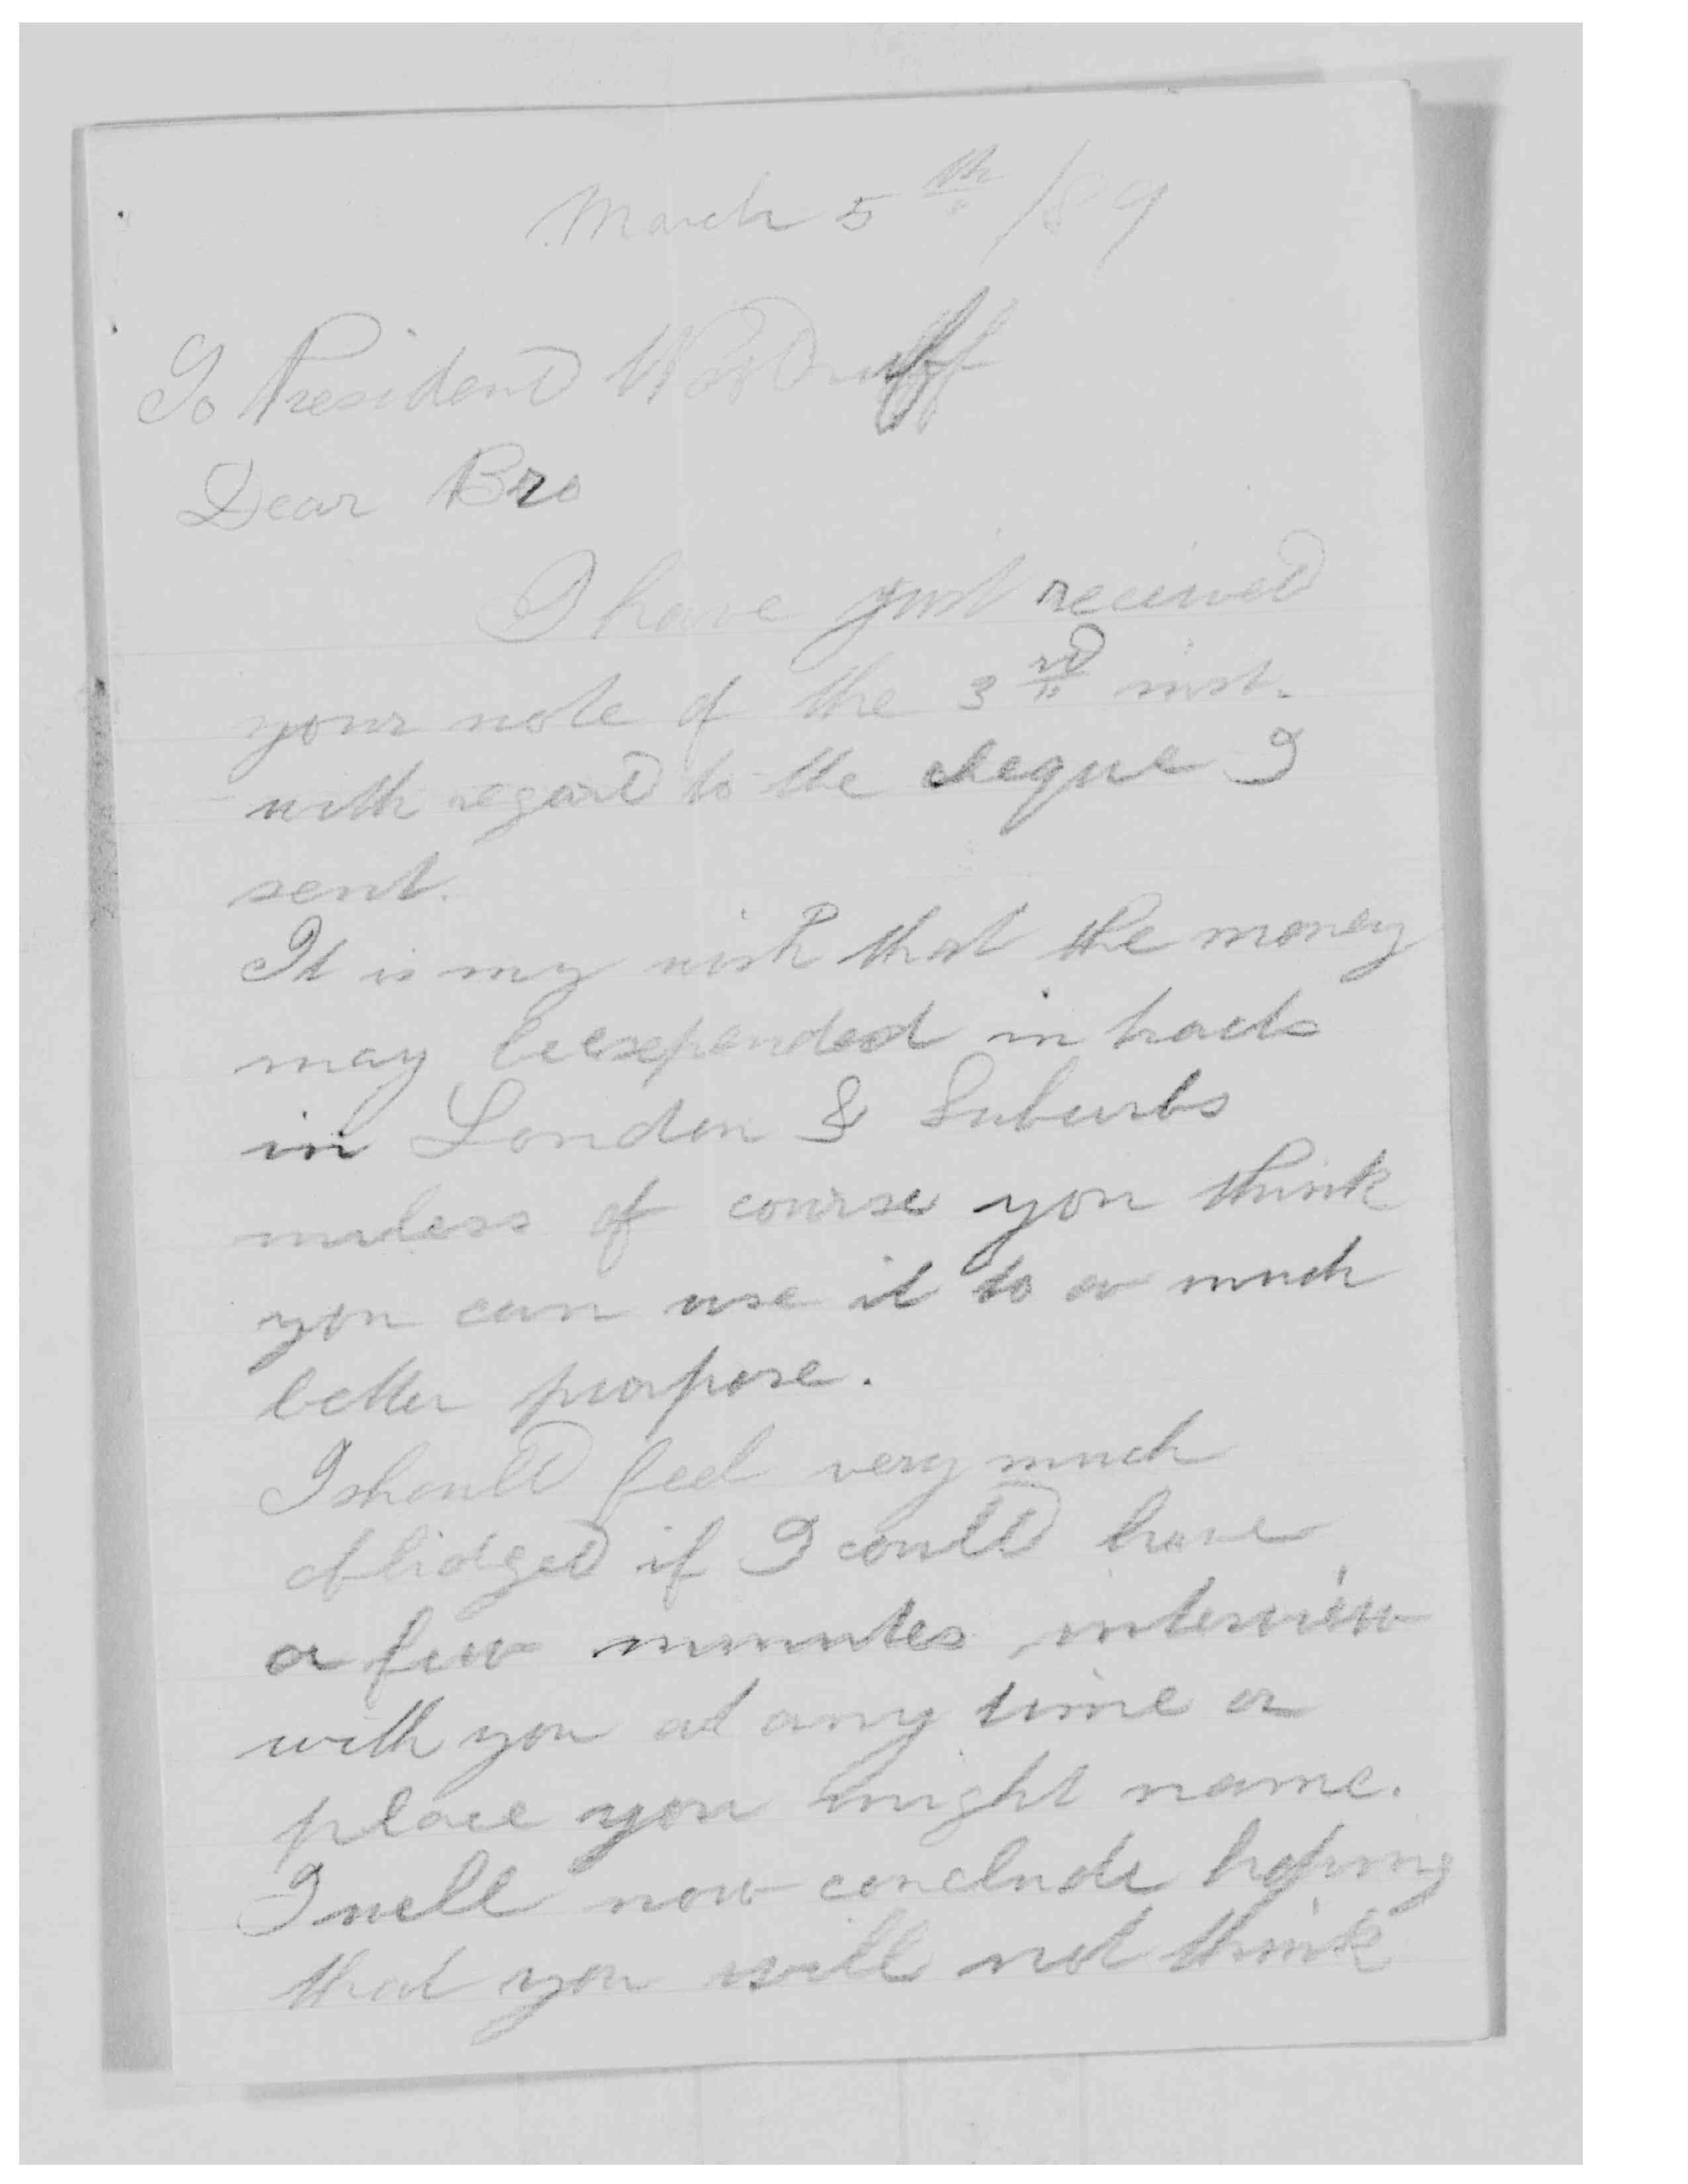 March 5th /89
To President Woodruff
Dear Bro
I have just received
your note of the 3rd inst.
with regard to the cheque I
sent.
It is my wish that the money
may be expended in tracts
in London & Suburbs
unless of course you think
you can use it to a much
better purpose.
I should feel very much
oblidged if I could have
a few minutes interview
with you at any time or
place you might name.
I will now conclude hoping
that you will not think